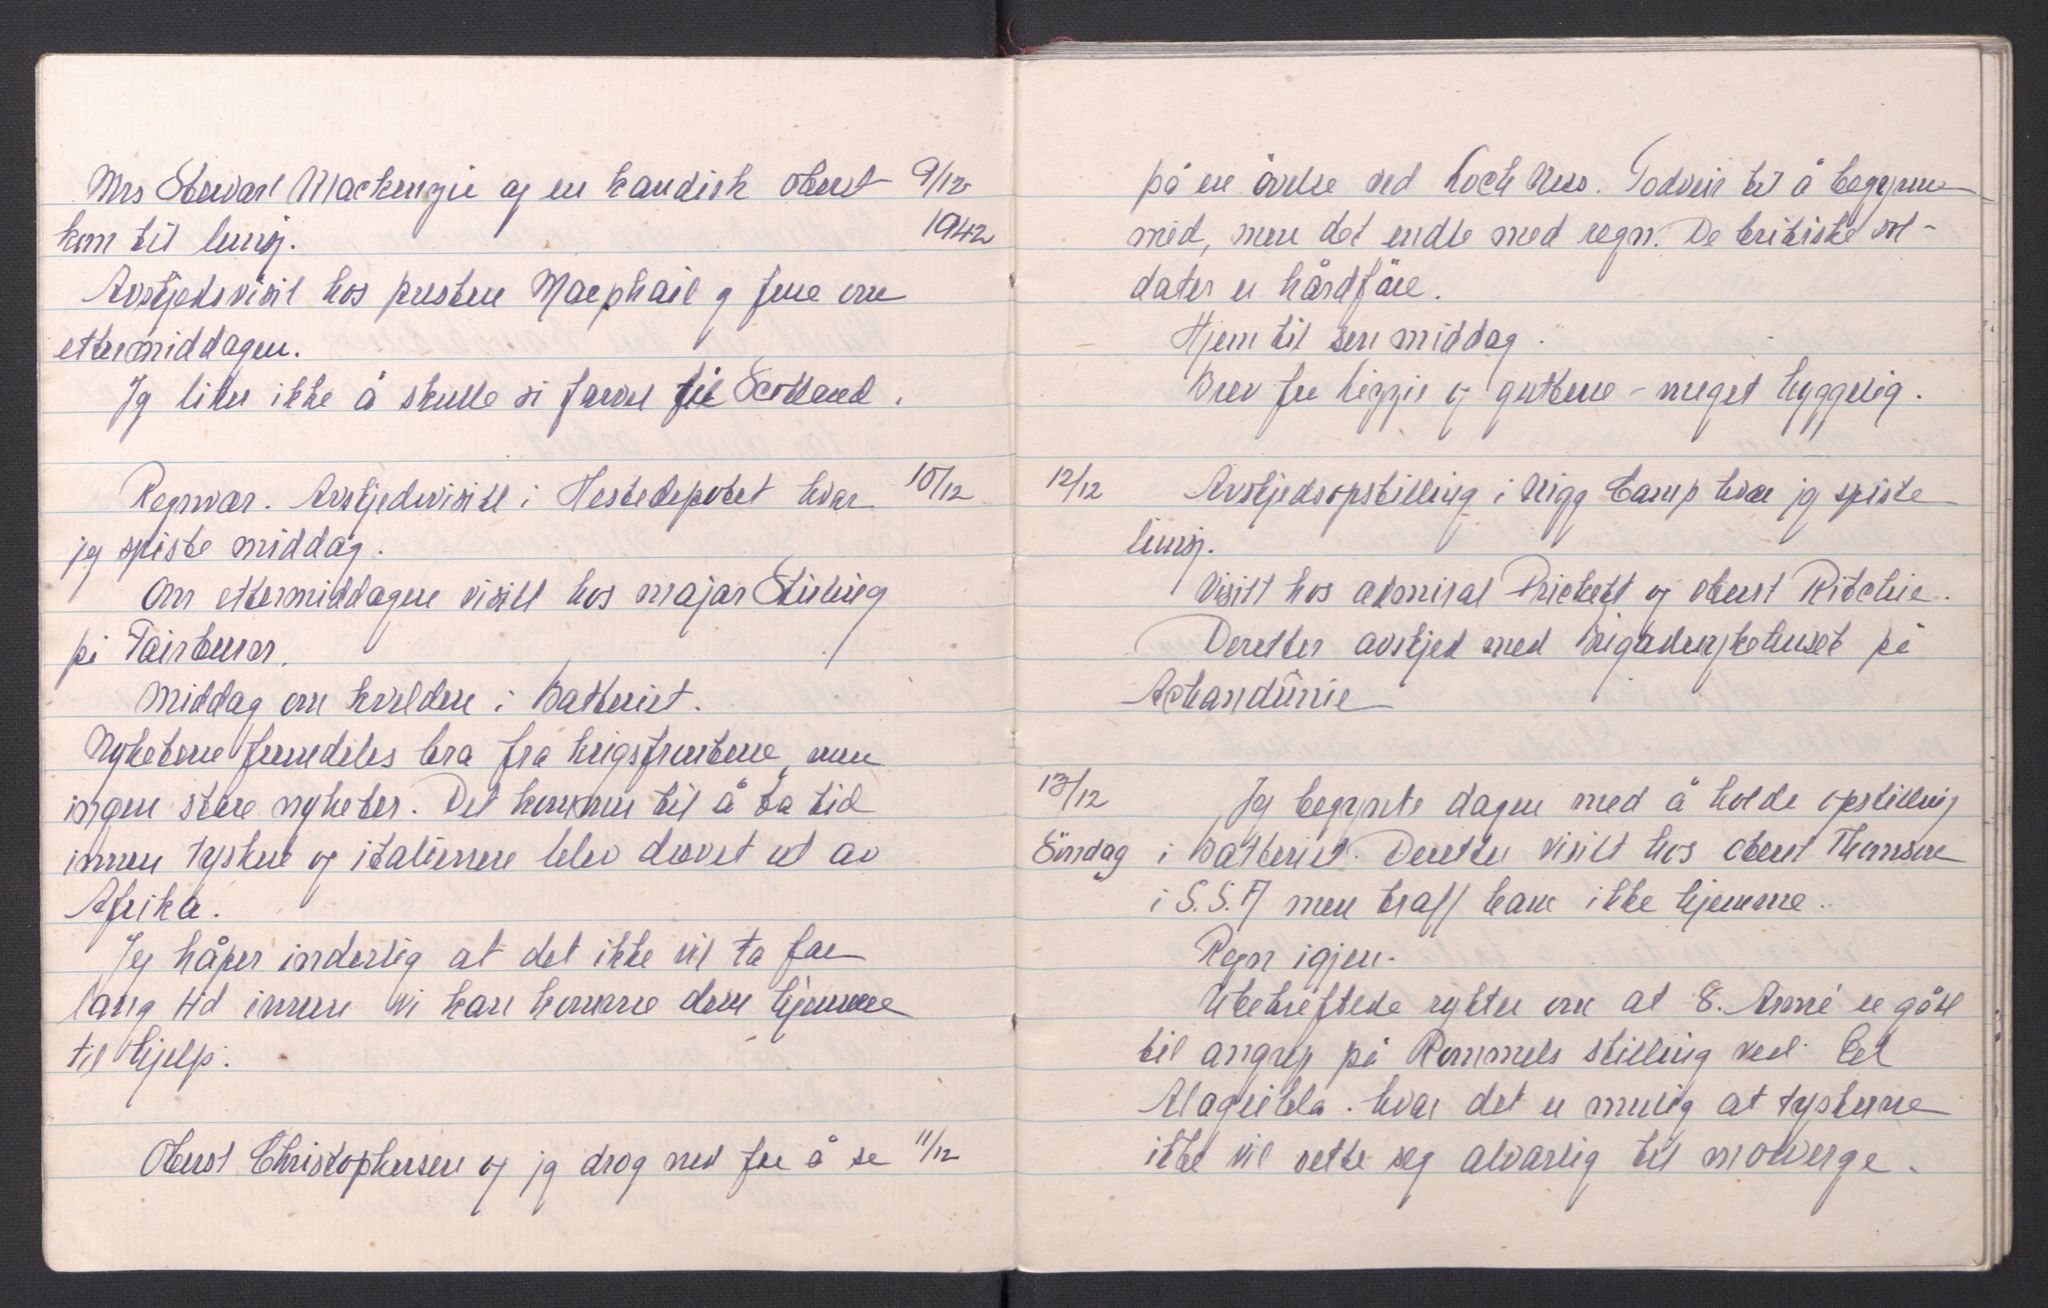 Mrs Stewart Mackenzie og en kanadisk oberst 9/12
kom til lunsj. 1942
Avskjedsvisit hos presten Macphail og frue om
ettermiddagen.
Jeg liker ikke å skulle si farvel til Scotland.
Regnvær. Avskjedsvisitt i Hestedepotet hvor 10/12
jeg spiste middag.
Om ettermiddagen visitt hos major Stirling
på Fairburn.
Middag om kvelden i Batteriet.
Nyhetene fremdeles bra fra krigsfrontene, men
ingen store nyheter. Det kommer til å ta tid
innen tyskere og italienere blev drevet ut av
Afrika.
Jeg håper inderlig at det ikke vil ta for
lang tid innen vi kan komme dem hjemme
til hjelp.
Oberst Christophersen og jeg drog ned for å se 11/12
på en övelse ved Loch Ness. Godveir til å begynne
med, men det endte med regn. De britiske sol-
dater er hårdföre.
Hjem til sen middag.
Brev fra Lizzie og guttene - meget hyggelig.
12/12 Avskjedsopstilling i Nigg Camp hvor jeg spiste
lunsj.
Visitt hos admiral Prickett og oberst Ritchie.
Deretter avskjed med Brigadesykehuset på
Achandunie
13/12 Jeg begynte dagen med å holde opstilling
Söndag i Batteriet. Deretter visitt hos oberst Thomson
i S.S.A men traff ham ikke hjemme.
Regn igjen.
Ubekreftede rykter om at 8. Armé er gått
til angrep på Rommels stilling ved El
Alagheibla. hvor det er mulig at tyskerne
ikke vil sette seg alvorlig til motverge.